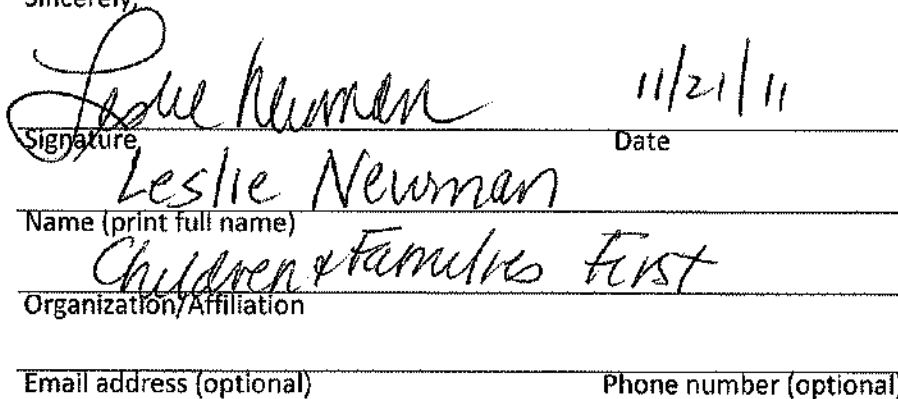 Sincerely,
Leslie Newman 11/21/11
Signature Date
Leslie Newman
Name (print full name)
Children & Families First
Organization/Affiliation
Email address (optional) Phone number (optional)